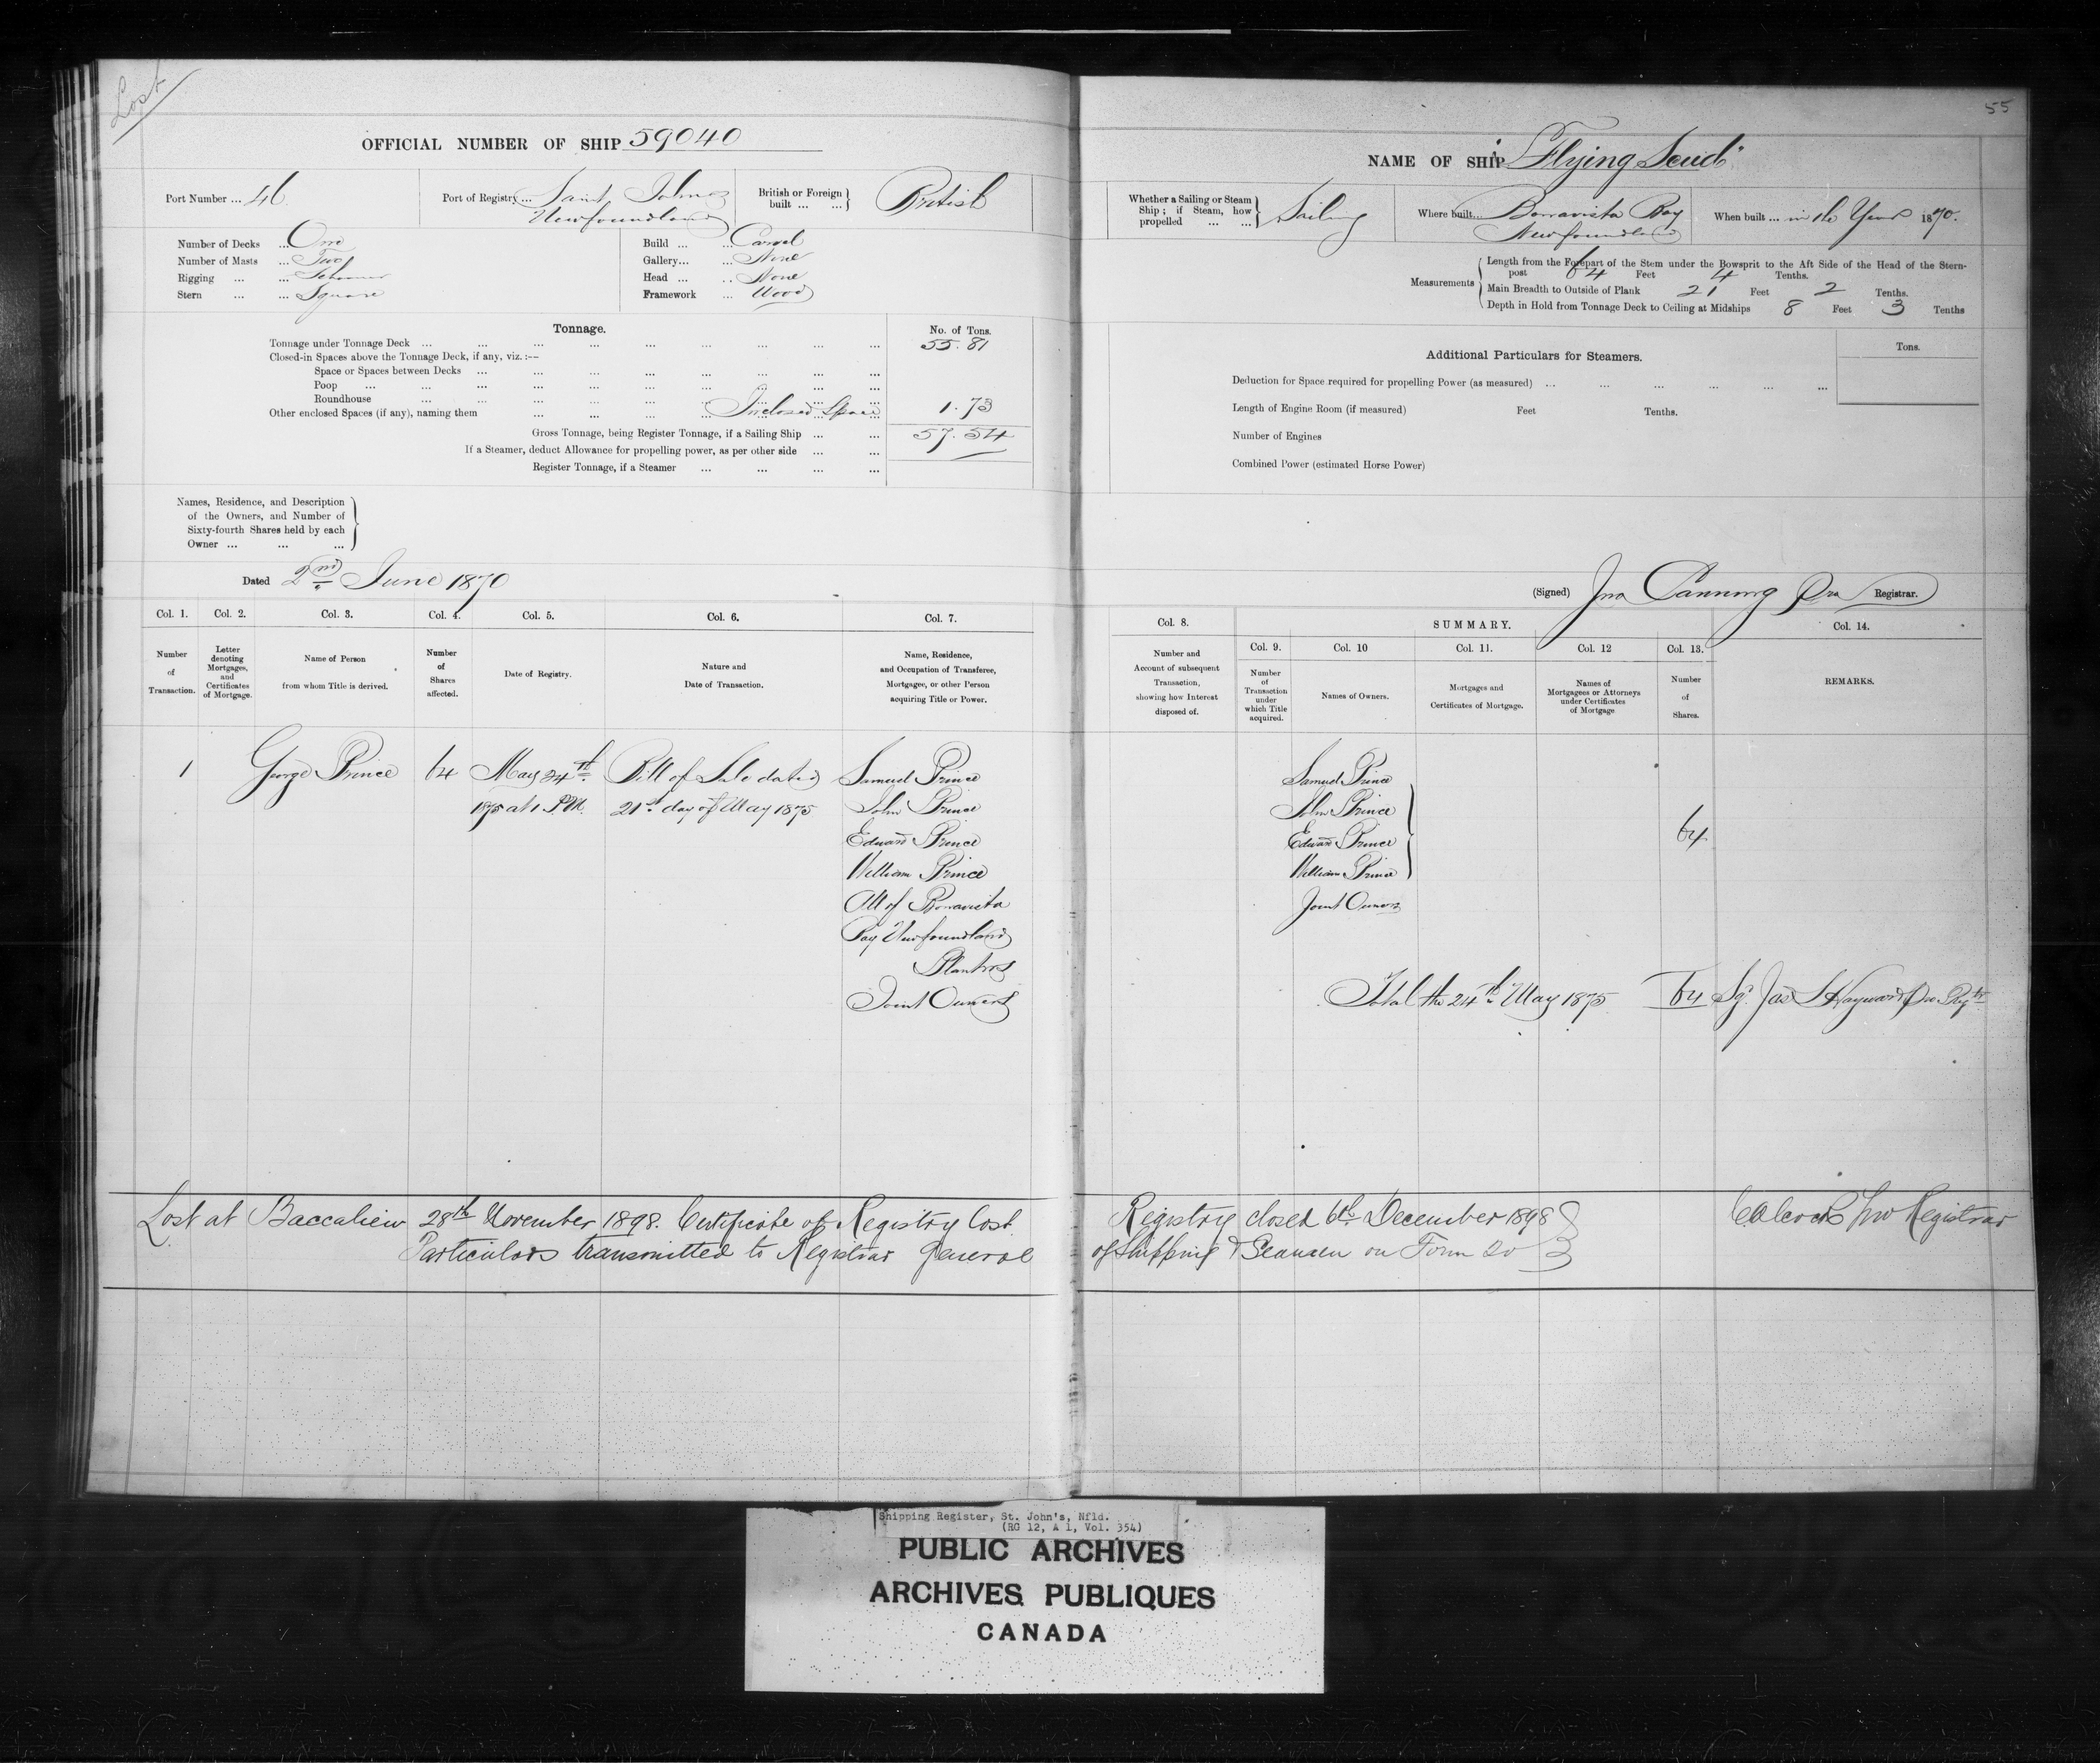 Lost
55
OFFICIAL NUMBER OF SHIP 59040
NAME OF SHIP "Flying Scud"
Port Number ... 46
Port of Registry ... Saint Johns
Newfoundland
British or Foreign built ... ... British
Number of Decks ... One
Number of Masts ... Two
Rigging ... ... Schooner
Stern ... ... Square
Build ... ... Carvel
Gallery... ... None
Head ... ... None
Framework ... Wood
Tonnage.
No. of Tons.
Tonnage under Tonnage Deck ... 55.81
Closed-in Spaces above the Tonnage Deck, if any, viz. :—
Space or Spaces between Decks ...
Poop ...
Roundhouse ...
Other enclosed Spaces (if any), naming them ... Inclosed Space 1.73
Gross Tonnage, being Register Tonnage, if a Sailing Ship ... 57.54
If a Steamer, deduct Allowance for propelling power, as per other side ...
Register Tonnage, if a Steamer ...
Names, Residence, and Description
of the Owners, and Number of
Sixty-fourth Shares held by each
Owner ... ... ...
Dated 2nd June 1870
Whether a Sailing or Steam
Ship ; if Steam, how
propelled ... ... Sailing
Where built... Bonavista Bay
Newfoundland
When built ... in the Year 1870.
Measurements
Length from the Forepart of the Stem under the Bowsprit to the Aft Side of the Head of the Stern-
post 64 Feet 4 Tenths.
Main Breadth to Outside of Plank 21 Feet 2 Tenths.
Depth in Hold from Tonnage Deck to Ceiling at Midships 8 Feet 3 Tenths
Additional Particulars for Steamers.
Tons.
Deduction for Space required for propelling Power (as measured) ...
Length of Engine Room (if measured) Feet Tenths.
Number of Engines
Combined Power (estimated Horse Power)
(Signed) Jno Canning Pro Registrar.
Col. 1. Col. 2. Col. 3. Col. 4. Col. 5. Col. 6. Col. 7.
Number of Transaction.
Letter denoting Mortgages, and Certificates of Mortgage.
Name of Person from whom Title is derived.
Number of Shares affected.
Date of Registry.
Nature and Date of Transaction.
Name, Residence, and Occupation of Transferee, Mortgagee, or other Person acquiring Title or Power.
Col. 8. SUMMARY. Col. 14.
Col. 9. Col. 10 Col. 11. Col. 12 Col. 13.
Number and Account of subsequent Transaction, showing how Interest disposed of.
Number of Transaction under which Title acquired.
Names of Owners.
Mortgages and Certificates of Mortgage.
Names of Mortgagees or Attorneys under Certificates of Mortgage
Number of Shares.
REMARKS.
1 George Prince 64 May 24th Bill of Sale dated Samuel Prince
1875 at 1 P.M. 21st day of May 1875 John Prince
Edward Prince
William Prince
All of Bonavista
Bay Newfoundland
Planters
Joint Owners
Samuel Prince
John Prince
Edward Prince
William Prince
Joint Owners
64
Total the 24th May 1875 64 Sgd Jas S Hayward Pro Regtr
Lost at Baccalieu 28th November 1898. Certificate of Registry Lost. Registry closed 6th December 1898
Particulars transmitted to Registrar General of Shipping & Seamen on Form 20
Pro Registrar
Shipping Register, St. John's, Nfld.
(RG 12, A 1, Vol. 354)
PUBLIC ARCHIVES
ARCHIVES PUBLIQUES
CANADA